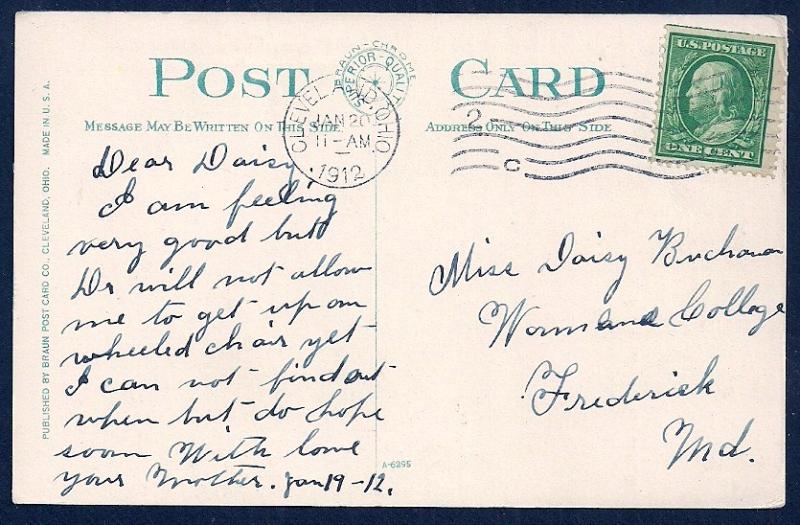 POST CARD
BRAUN-CHROME
SUPERIOR-QUALITY
MESSAGE MAY BE WRITTEN ON THIS SIDE
ADDRESS ONLY ON THIS SIDE
CLEVELAND, OHIO.
JAN 20
11-AM
1912
2
C
U.S. POSTAGE
ONE CENT
Dear Daisy
I am feeling
very good but
Dr will not allow
me to get up on
wheeled chair yet
I can not find out
when but do hope
soon With love
your Mother. Jan 19-12.
Miss Daisy Buchanan
Womans College
Frederick
Md.
A-6295
PUBLISHED BY BRAUN POST CARD CO., CLEVELAND, OHIO. MADE IN U.S.A.